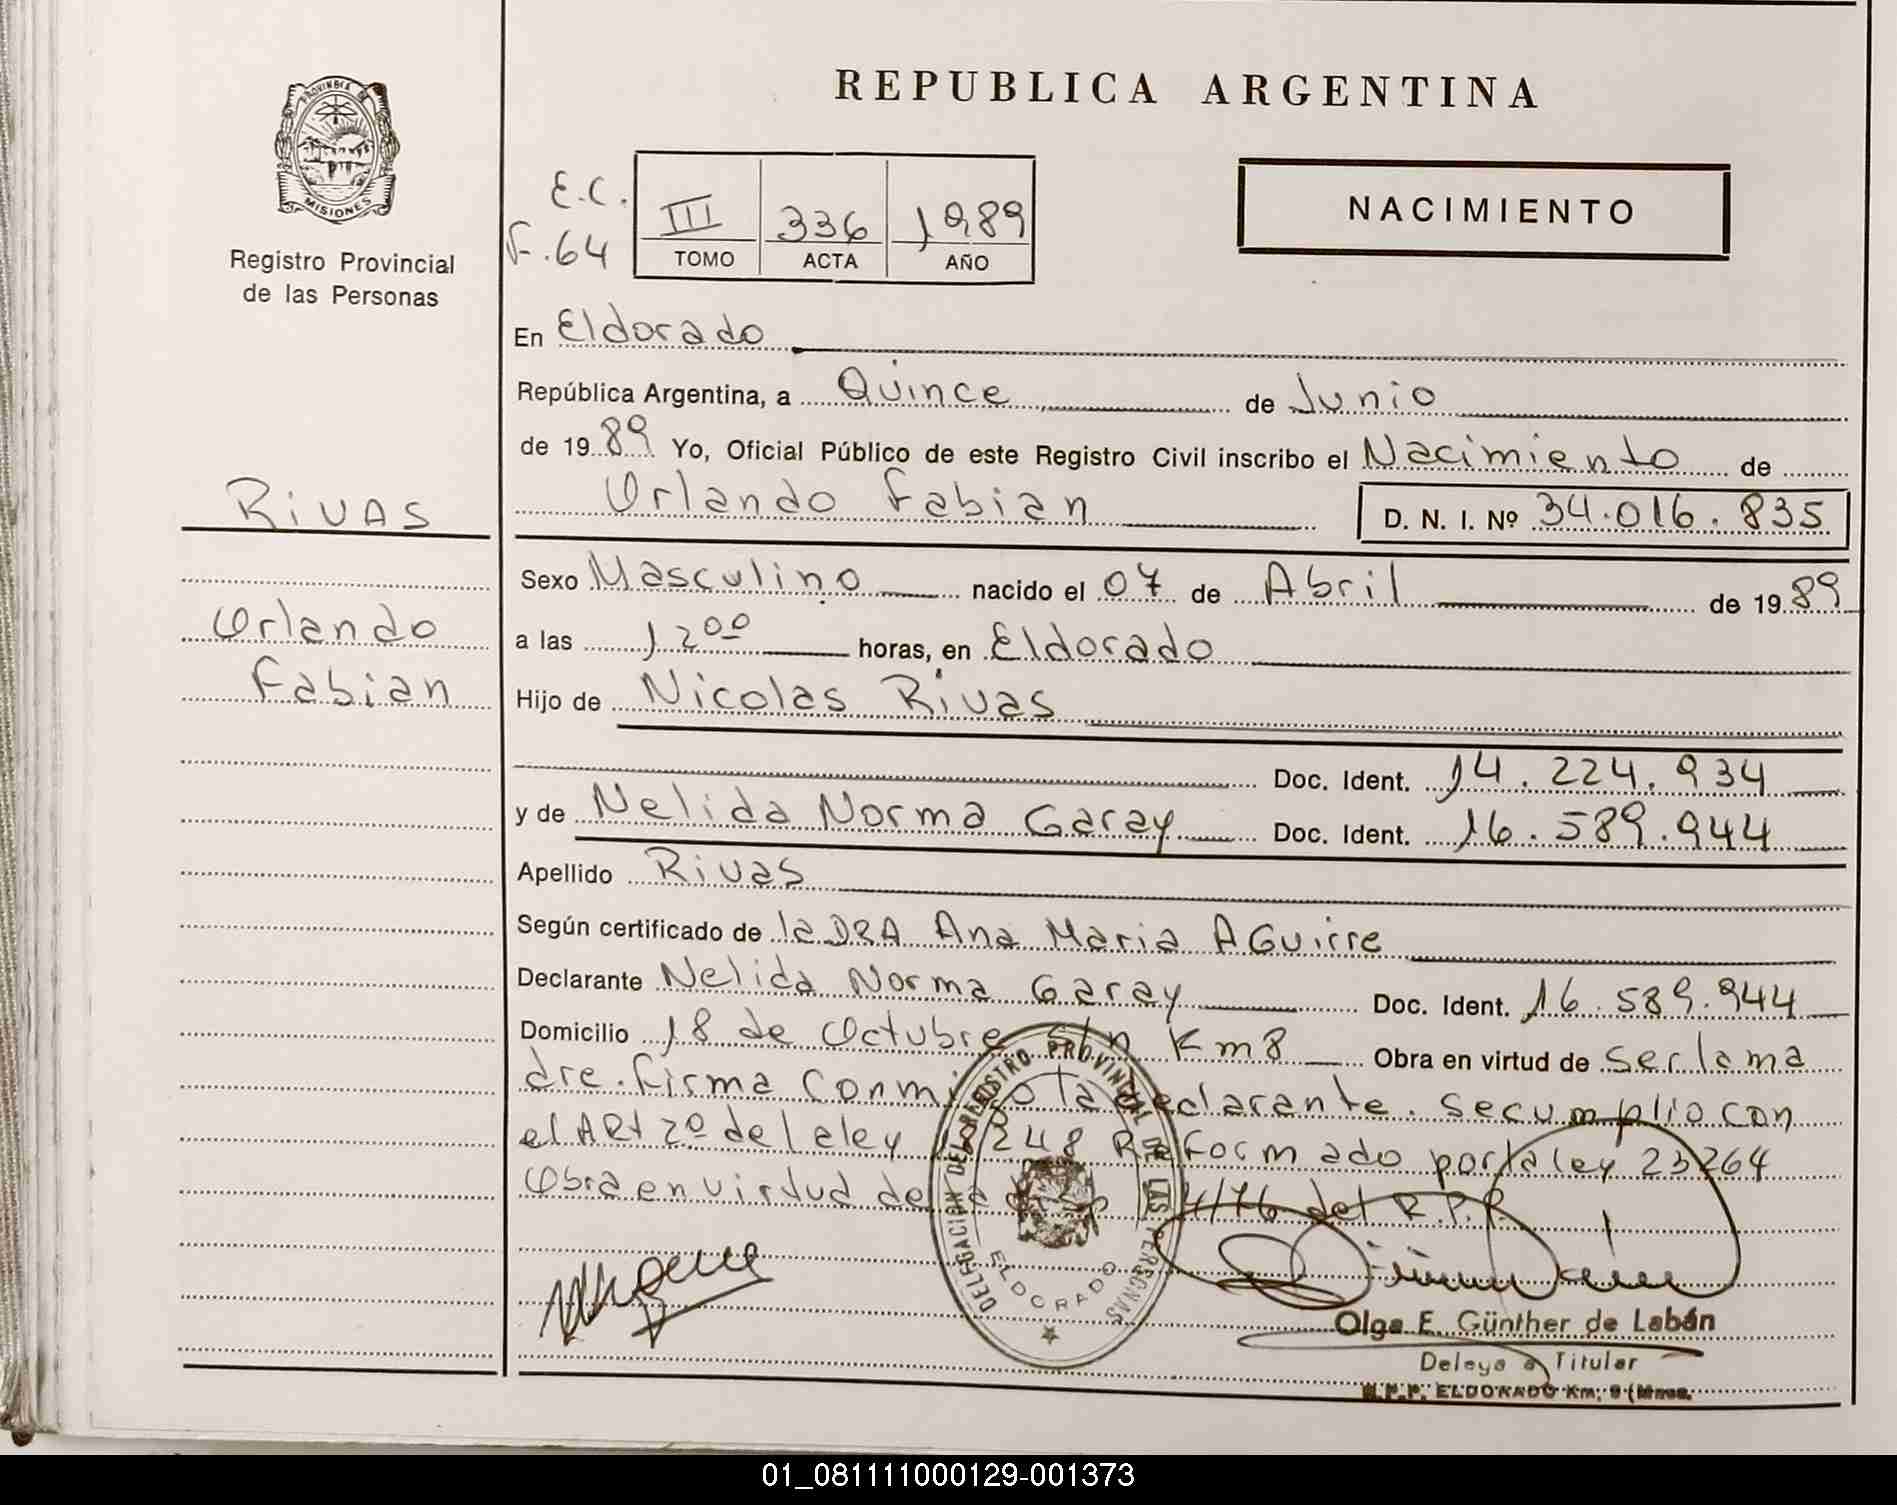 PROVINCIA DE
MISIONES
Registro Provincial
de las Personas
REPUBLICA ARGENTINA
NACIMIENTO
E.C.
F. 64
III 336 1989
TOMO ACTA AÑO
En Eldorado
República Argentina, a Quince de Junio
de 1989 Yo, Oficial Público de este Registro Civil inscribo el Nacimiento de
Orlando Fabian D. N. I. Nº 34.016.835
RIVAS
Orlando
Fabian
Sexo Masculino nacido el 07 de Abril de 1989
a las 12 00 horas, en Eldorado
Hijo de Nicolas Rivas
Doc. Ident. 14.224.934
y de Nelida Norma Garay Doc. Ident. 16.589.944
Apellido Rivas
Según certificado de la DRA Ana Maria AGuirre
Declarante Nelida Norma Garay Doc. Ident. 16.589.944
Domicilio 18 de Octubre s/n Km 8 Obra en virtud de ser la ma
dre. Firma conmigo la declarante. se cumplio con
el ART 2º de la ley 18248 Reformado por la ley 23264
Obra en virtud de la 4/76 del R.P.P.
DELEGACION DEL REGISTRO PROVINCIAL DE LAS PERSONAS
ELDORADO
Olga E. Günther de Labán
Delega a Titular
R.P.P. ELDORADO Km. 9 (Mnes.
01_081111000129-001373